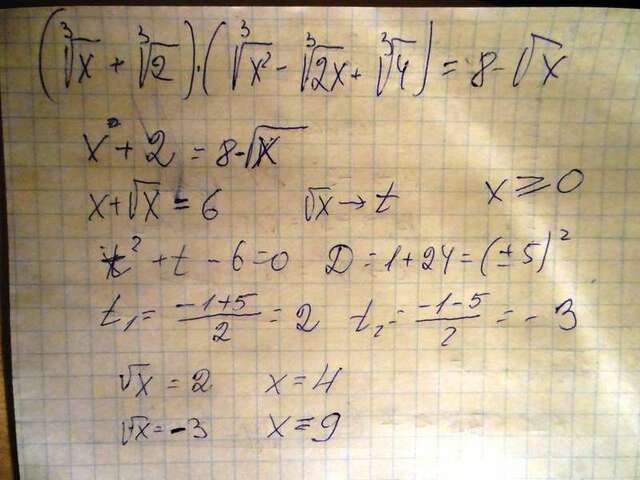 (∛x + ∛2)·(∛x² - ∛2x + ∛4) = 8 - √x
x + 2 = 8 - √x
x + √x = 6 √x → t x ≥ 0
t² + t - 6 = 0 D = 1 + 24 = (±5)²
t₁ = (-1+5)/2 = 2 t₂ = (-1-5)/2 = -3
√x = 2 x = 4
√x = -3 x = 9